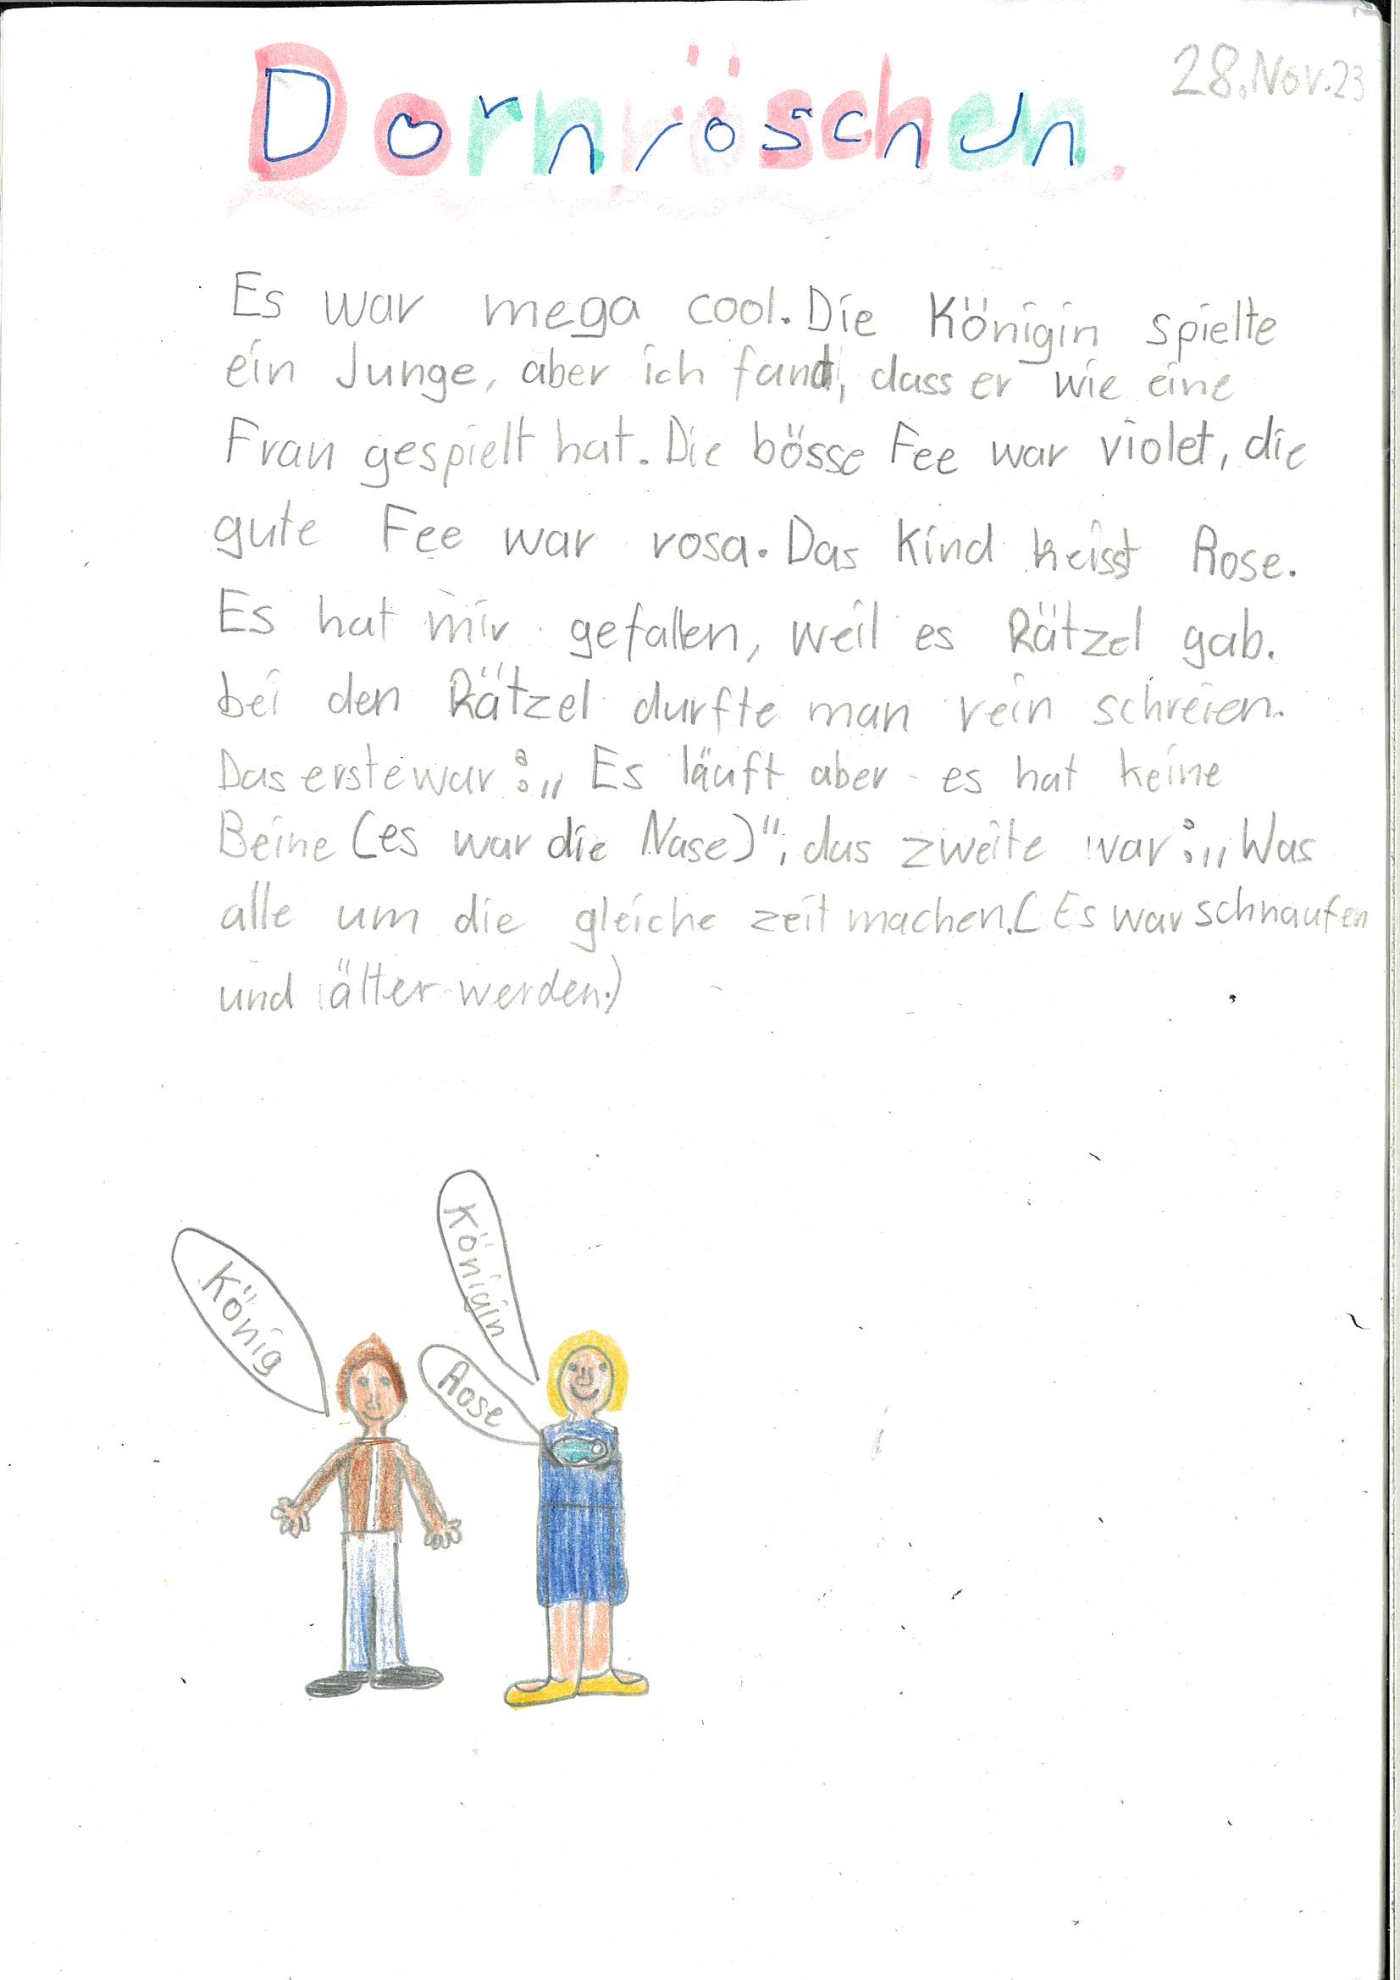 28. Nov. 23
Dornröschen.
Es war mega cool. Die Königin spielte
ein Junge, aber ich fand, dass er wie eine
Frau gespielt hat. Die bösse Fee war violet, die
gute Fee war rosa. Das Kind heisst Rose.
Es hat mir gefallen, weil es Rätzel gab.
bei den Rätzel durfte man rein schreien.
Das erste war: „Es läuft aber es hat keine
Beine (es war die Nase)", das zweite war: „Was
alle um die gleiche zeit machen. (Es war schnaufen
und älter werden.)
Königin
König
Rose